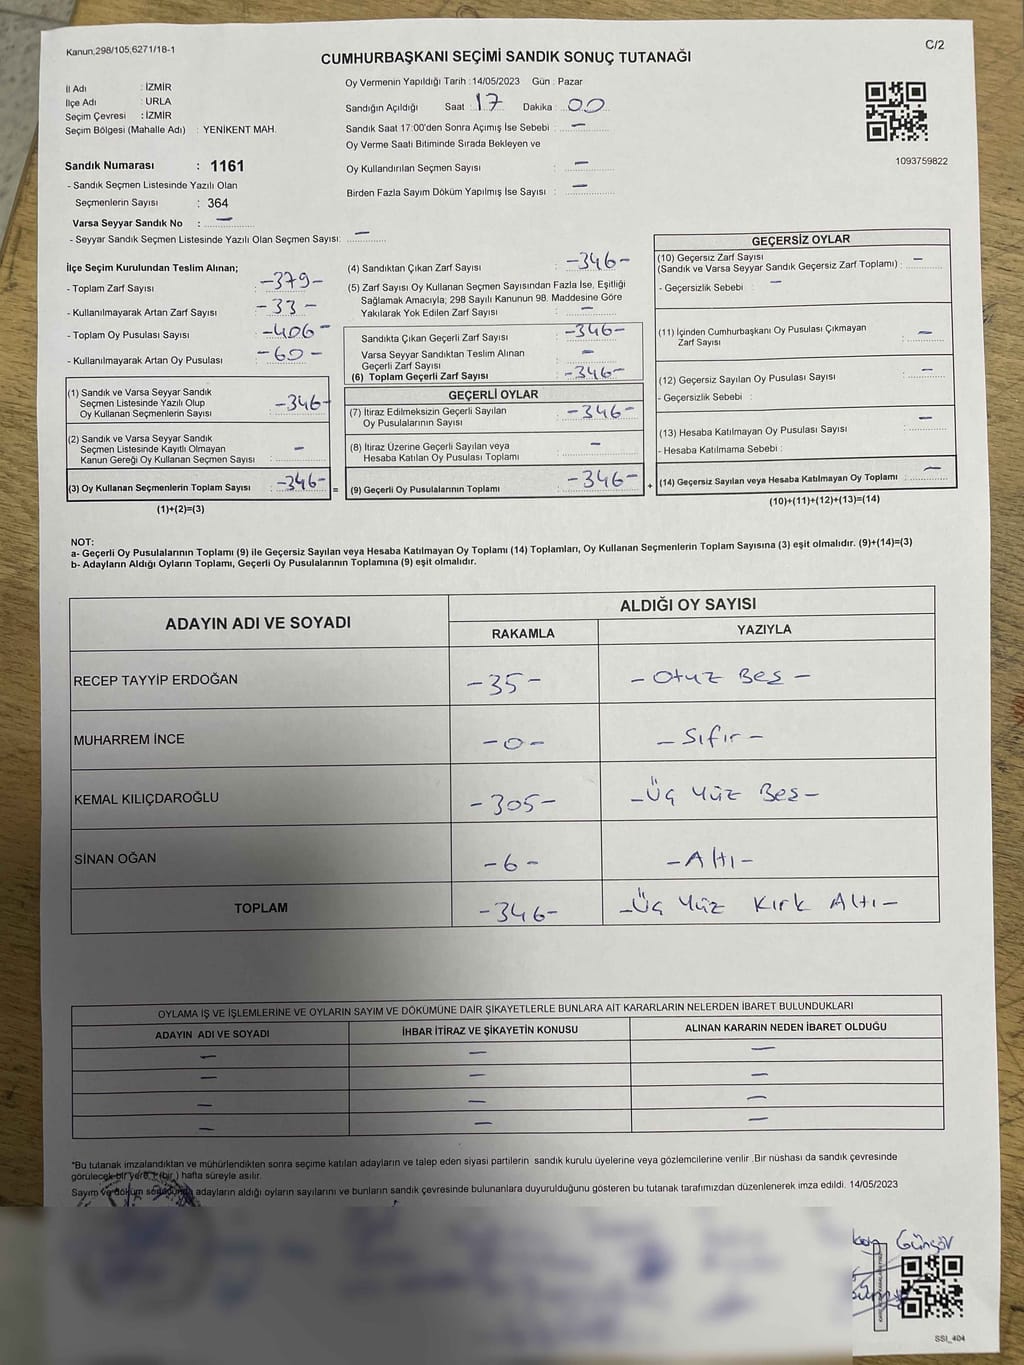 Kanun,298/105,6271/18-1
C/2
CUMHURBAŞKANI SEÇİMİ SANDIK SONUÇ TUTANAĞI
İl Adı : İZMİR
İlçe Adı : URLA
Seçim Çevresi : İZMİR
Seçim Bölgesi (Mahalle Adı) : YENİKENT MAH.
Sandık Numarası : 1161
- Sandık Seçmen Listesinde Yazılı Olan
Seçmenlerin Sayısı : 364
Varsa Seyyar Sandık No : —
- Seyyar Sandık Seçmen Listesinde Yazılı Olan Seçmen Sayısı: —
Oy Vermenin Yapıldığı Tarih : 14/05/2023 Gün : Pazar
Sandığın Açıldığı Saat : 17 Dakika : 00
Sandık Saat 17:00'den Sonra Açımış İse Sebebi : —
Oy Verme Saati Bitiminde Sırada Bekleyen ve
Oy Kullandırılan Seçmen Sayısı : —
Birden Fazla Sayım Döküm Yapılmış İse Sayısı : —
1093759822
İlçe Seçim Kurulundan Teslim Alınan;
- Toplam Zarf Sayısı : -379-
- Kullanılmayarak Artan Zarf Sayısı : -33-
- Toplam Oy Pusulası Sayısı : -406-
- Kullanılmayarak Artan Oy Pusulası : -60-
(1) Sandık ve Varsa Seyyar Sandık
Seçmen Listesinde Yazılı Olup
Oy Kullanan Seçmenlerin Sayısı : -346-
(2) Sandık ve Varsa Seyyar Sandık
Seçmen Listesinde Kayıtlı Olmayan
Kanun Gereği Oy Kullanan Seçmen Sayısı : —
(3) Oy Kullanan Seçmenlerin Toplam Sayısı : -346-
(1)+(2)=(3)
(4) Sandıktan Çıkan Zarf Sayısı : -346-
(5) Zarf Sayısı Oy Kullanan Seçmen Sayısından Fazla İse, Eşitliği
Sağlamak Amacıyla; 298 Sayılı Kanunun 98. Maddesine Göre
Yakılarak Yok Edilen Zarf Sayısı : —
Sandıkta Çıkan Geçerli Zarf Sayısı : -346-
Varsa Seyyar Sandıktan Teslim Alınan
Geçerli Zarf Sayısı : —
(6) Toplam Geçerli Zarf Sayısı : -346-
GEÇERLİ OYLAR
(7) İtiraz Edilmeksizin Geçerli Sayılan
Oy Pusulalarının Sayısı : -346-
(8) İtiraz Üzerine Geçerli Sayılan veya
Hesaba Katılan Oy Pusulası Toplamı : —
= (9) Geçerli Oy Pusulalarının Toplamı : -346-
GEÇERSİZ OYLAR
(10) Geçersiz Zarf Sayısı
(Sandık ve Varsa Seyyar Sandık Geçersiz Zarf Toplamı) : —
- Geçersizlik Sebebi : —
(11) İçinden Cumhurbaşkanı Oy Pusulası Çıkmayan
Zarf Sayısı : —
(12) Geçersiz Sayılan Oy Pusulası Sayısı : —
- Geçersizlik Sebebi :
(13) Hesaba Katılmayan Oy Pusulası Sayısı : —
- Hesaba Katılmama Sebebi :
+ (14) Geçersiz Sayılan veya Hesaba Katılmayan Oy Toplamı : —
(10)+(11)+(12)+(13)=(14)
NOT:
a- Geçerli Oy Pusulalarının Toplamı (9) ile Geçersiz Sayılan veya Hesaba Katılmayan Oy Toplamı (14) Toplamları, Oy Kullanan Seçmenlerin Toplam Sayısına (3) eşit olmalıdır. (9)+(14)=(3)
b- Adayların Aldığı Oyların Toplamı, Geçerli Oy Pusulalarının Toplamına (9) eşit olmalıdır.
ADAYIN ADI VE SOYADI
ALDIĞI OY SAYISI
RAKAMLA YAZIYLA
RECEP TAYYİP ERDOĞAN -35- - Otuz Beş -
MUHARREM İNCE -0- - Sıfır -
KEMAL KILIÇDAROĞLU -305- - Üç Yüz Beş -
SİNAN OĞAN -6- - Altı -
TOPLAM -346- - Üç Yüz Kırk Altı -
OYLAMA İŞ VE İŞLEMLERİNE VE OYLARIN SAYIM VE DÖKÜMÜNE DAİR ŞİKAYETLERLE BUNLARA AİT KARARLARIN NELERDEN İBARET BULUNDUKLARI
ADAYIN ADI VE SOYADI İHBAR İTİRAZ VE ŞİKAYETİN KONUSU ALINAN KARARIN NEDEN İBARET OLDUĞU
— — —
— — —
— — —
— — —
*Bu tutanak imzalandıktan ve mühürlendikten sonra seçime katılan adayların ve talep eden siyasi partilerin sandık kurulu üyelerine veya gözlemcilerine verilir .Bir nüshası da sandık çevresinde
görülecek bir yere 1 (bir ) hafta süreyle asılır.
Sayım ve döküm sonucunda adayların aldığı oyların sayılarını ve bunların sandık çevresinde bulunanlara duyurulduğunu gösteren bu tutanak tarafımızdan düzenlenerek imza edildi. 14/05/2023
Güngör
SSI_404